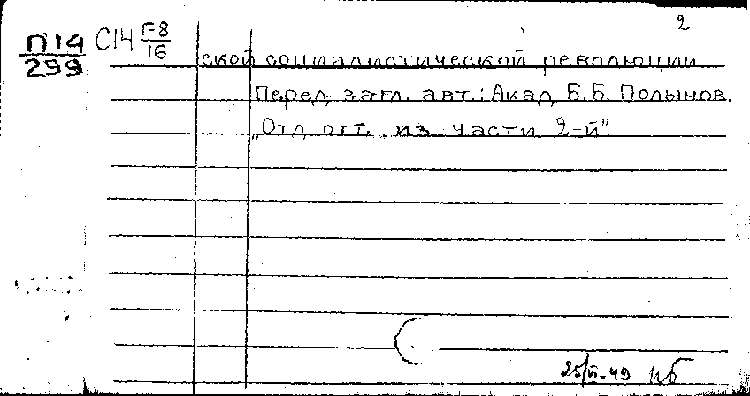 2
П14 С14 Г-8
299 16
ской социалистической революции
Перед загл. авт.: Акад. Б.Б. Полынов.
"Отд. отт. из части 2-й"
25/VI-49